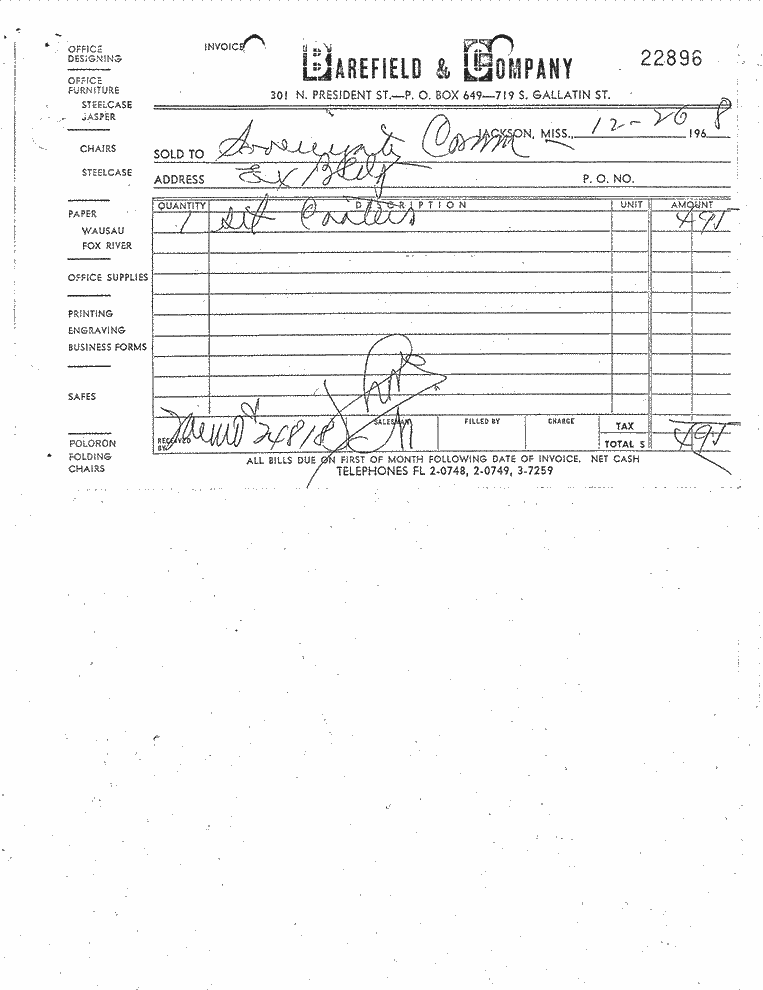 INVOICE
BAREFIELD & COMPANY
22896
301 N. PRESIDENT ST.—P. O. BOX 649—719 S. GALLATIN ST.
JACKSON, MISS., 12-20 1968
SOLD TO Sovereignty Comm
ADDRESS
P. O. NO.
QUANTITY DESCRIPTION UNIT AMOUNT
1 set Casters 4 95
RECEIVED BY
SALESMAN FILLED BY CHARGE TAX
TOTAL $ 4 95
ALL BILLS DUE ON FIRST OF MONTH FOLLOWING DATE OF INVOICE. NET CASH
TELEPHONES FL 2-0748, 2-0749, 3-7259
OFFICE
DESIGNING
OFFICE
FURNITURE
STEELCASE
JASPER
CHAIRS
STEELCASE
PAPER
WAUSAU
FOX RIVER
OFFICE SUPPLIES
PRINTING
ENGRAVING
BUSINESS FORMS
SAFES
POLORON
FOLDING
CHAIRS